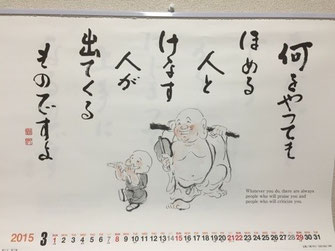 何をやっても
ほめる
人と
けなす
人が
出てくる
ものですよ
Whatever you do, there are always
people who will praise you and
people who will criticize you.
2015 3 1 2 3 4 5 6 7 8 9 10 11 12 13 14 15 16 17 18 19 20 21 22 23 24 25 26 27 28 29 30 31